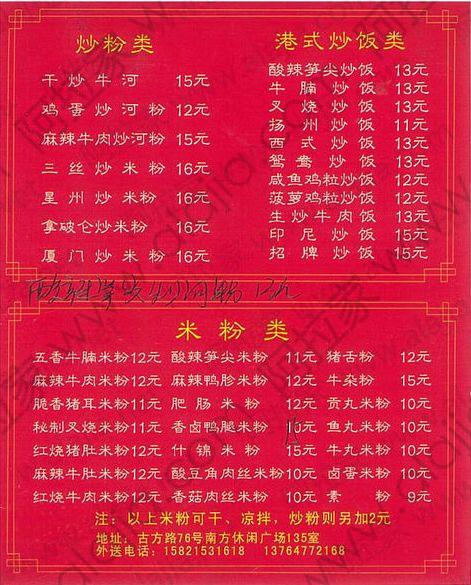 炒粉类
干炒牛河 15元
鸡蛋炒河粉 12元
麻辣牛肉炒河粉 15元
三丝炒米粉 16元
星州炒米粉 16元
拿破仑炒米粉 16元
厦门炒米粉 16元
港式炒饭类
酸辣笋尖炒饭 13元
牛腩炒饭 13元
叉烧炒饭 13元
扬州炒饭 11元
西式炒饭 13元
鸳鸯炒饭 13元
咸鱼鸡粒炒饭 12元
菠萝鸡粒炒饭 12元
生炒牛肉饭 13元
印尼炒饭 15元
招牌炒饭 15元
炒河粉 12元
米粉类
五香牛腩米粉12元 酸辣笋尖米粉 11元 猪舌粉 12元
麻辣牛肉米粉12元 麻辣鸭胗米粉 12元 牛杂粉 15元
脆香猪耳米粉11元 肥肠米粉 12元 贡丸米粉 10元
秘制叉烧米粉11元 香卤鸭腿米粉 元 鱼丸米粉 10元
红烧猪肚米粉12元 什锦米粉 15元 牛丸米粉 10元
麻辣牛肚米粉12元 酸豆角肉丝米粉10元 卤蛋米粉 10元
红烧牛肉米粉12元 香菇肉丝米粉 10元 素粉 9元
注：以上米粉可干、凉拌，炒粉则另加2元
地址：古方路76号南方休闲广场135室
外送电话：15821531618 13764772168